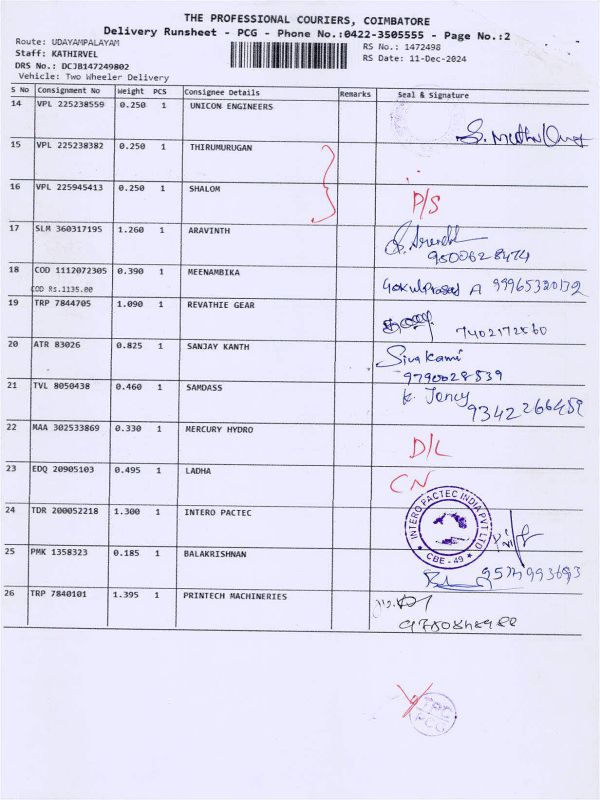 THE PROFESSIONAL COURIERS, COIMBATORE
Delivery Runsheet - PCG - Phone No.:0422-3505555 - Page No.:2
Route: UDAYAMPALAYAM
Staff: KATHIRVEL
DRS No.: DCJB147249802
Vehicle: Two Wheeler Delivery
RS No.: 1472498
RS Date: 11-Dec-2024
S No Consignment No Weight PCS Consignee Details Remarks Seal & Signature
14 VPL 225238559 0.250 1 UNICON ENGINEERS
15 VPL 225238382 0.250 1 THIRUMURUGAN
16 VPL 225945413 0.250 1 SHALOM D/S
17 SLM 360317195 1.260 1 ARAVINTH
9500628474
18 COD 1112072305 0.390 1 MEENAMBIKA Gokulprasad A
COD Rs.1135.00
19 TRP 7844705 1.090 1 REVATHIE GEAR
7402172860
20 ATR 83026 0.825 1 SANJAY KANTH Sivakami
9790028839
21 TVL 8050438 0.460 1 SAMDASS K. Jency
22 MAA 302533869 0.330 1 MERCURY HYDRO D/L
23 EDQ 20905103 0.495 1 LADHA CN
24 TDR 200052218 1.300 1 INTERO PACTEC INTERO PACTEC INDIA PVT LTD
CBE - 49
25 PMK 1358323 0.185 1 BALAKRISHNAN
26 TRP 7840101 1.395 1 PRINTECH MACHINERIES
PCG